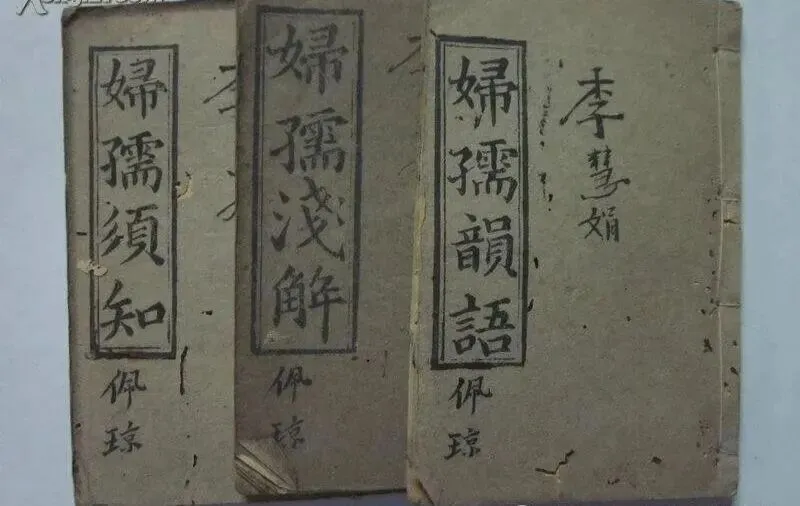 婦孺須知
佩
琼
婦孺淺解
佩
琼
婦孺韻語
佩
琼
李慧娟